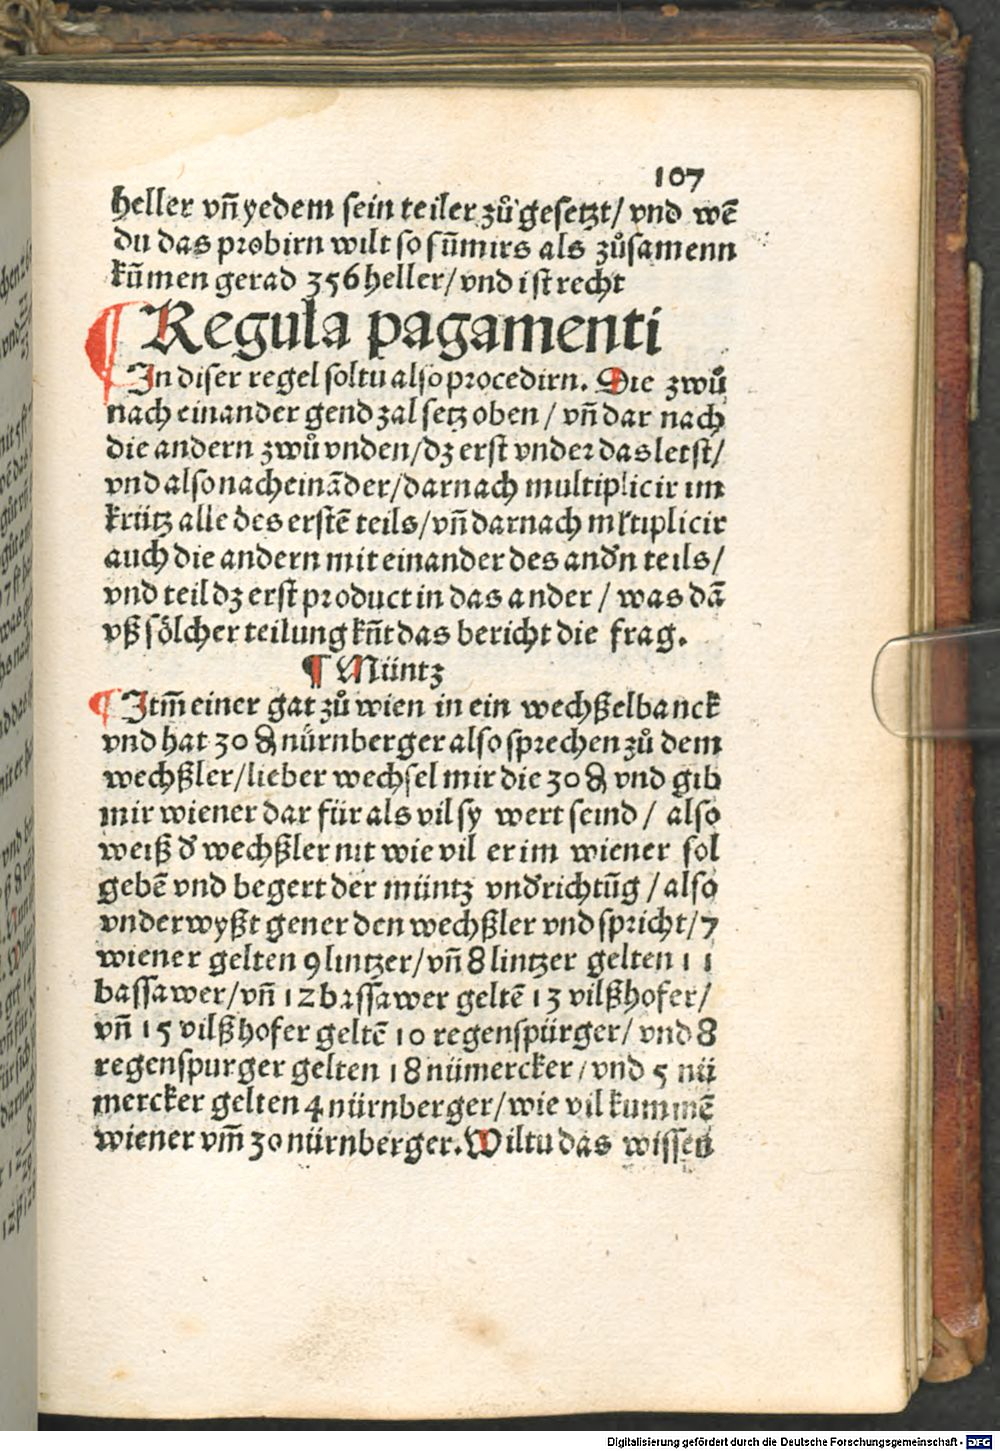 107
heller vñ yedem sein teiler zů gesetzt/ vnd wē
du das probirn wilt so sūmirs als zůsamenn
kūmen gerad 356 heller/ vnd ist recht
¶ Regula pagamenti
In diser regel soltu also procedirn. Die zwů
nach einander gend zal setz oben / vñ dar nach
die andern zwů vnden/ dz erst vnder das letst/
vnd also nach eināder/ darnach multiplicir im
krütz alle des erstē teils/ vñ darnach mltiplicir
auch die andern mit einander des andn teils/
vnd teil dz erst product in das ander / was dā
vß sölcher teilung kñt das bericht die frag.
¶ Müntz
¶ Itm̄ einer gat zů wien in ein wechßelbanck
vnd hat 30 ₰ nürnberger also sprechen zů dem
wechßler/ lieber wechsel mir die 30 ₰ vnd gib
mir wiener dar für als vil sy wert seind / also
weiß d wechßler nit wie vil er im wiener sol
gebē vnd begert der müntz vndrichtūg / also
vnderwyßt gener den wechßler vnd spricht/ 7
wiener gelten 9 lintzer/ vñ 8 lintzer gelten 11
bassawer/ vñ 12 bassawer geltē 13 vilßhofer/
vñ 15 vilßhofer geltē 10 regenspürger/ vnd 8
regenspurger gelten 18 nümercker / vnd 5 nü
mercker gelten 4 nürnberger/ wie vil kummē
wiener vm̄ 30 nürnberger. Wiltu das wissen
Digitalisierung gefördert durch die Deutsche Forschungsgemeinschaft - DFG